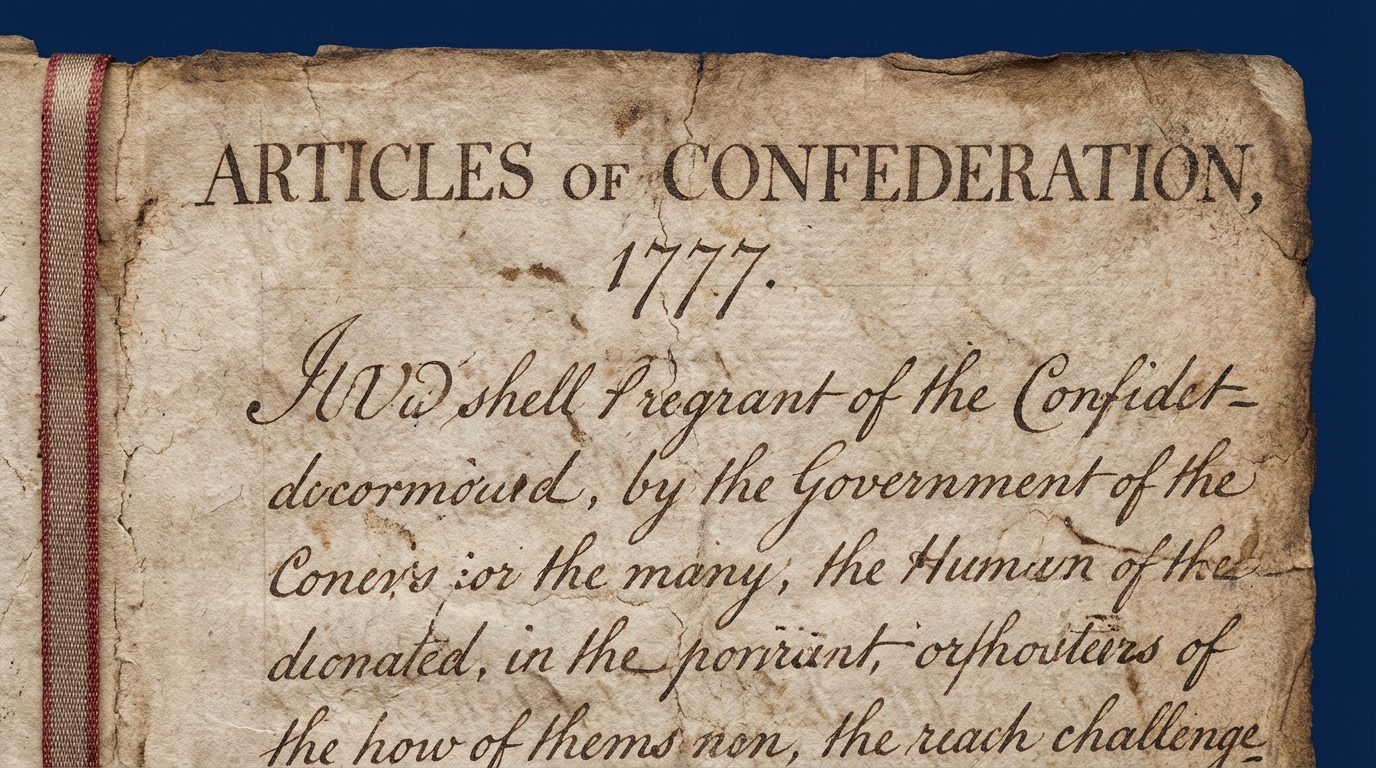 ARTICLES OF CONFEDERATION,
1777.
shell Pregrant of the Confidet-
by the Government of the
the many, the Human of the
dionated, in the of
the how of thems non, the reach challenge